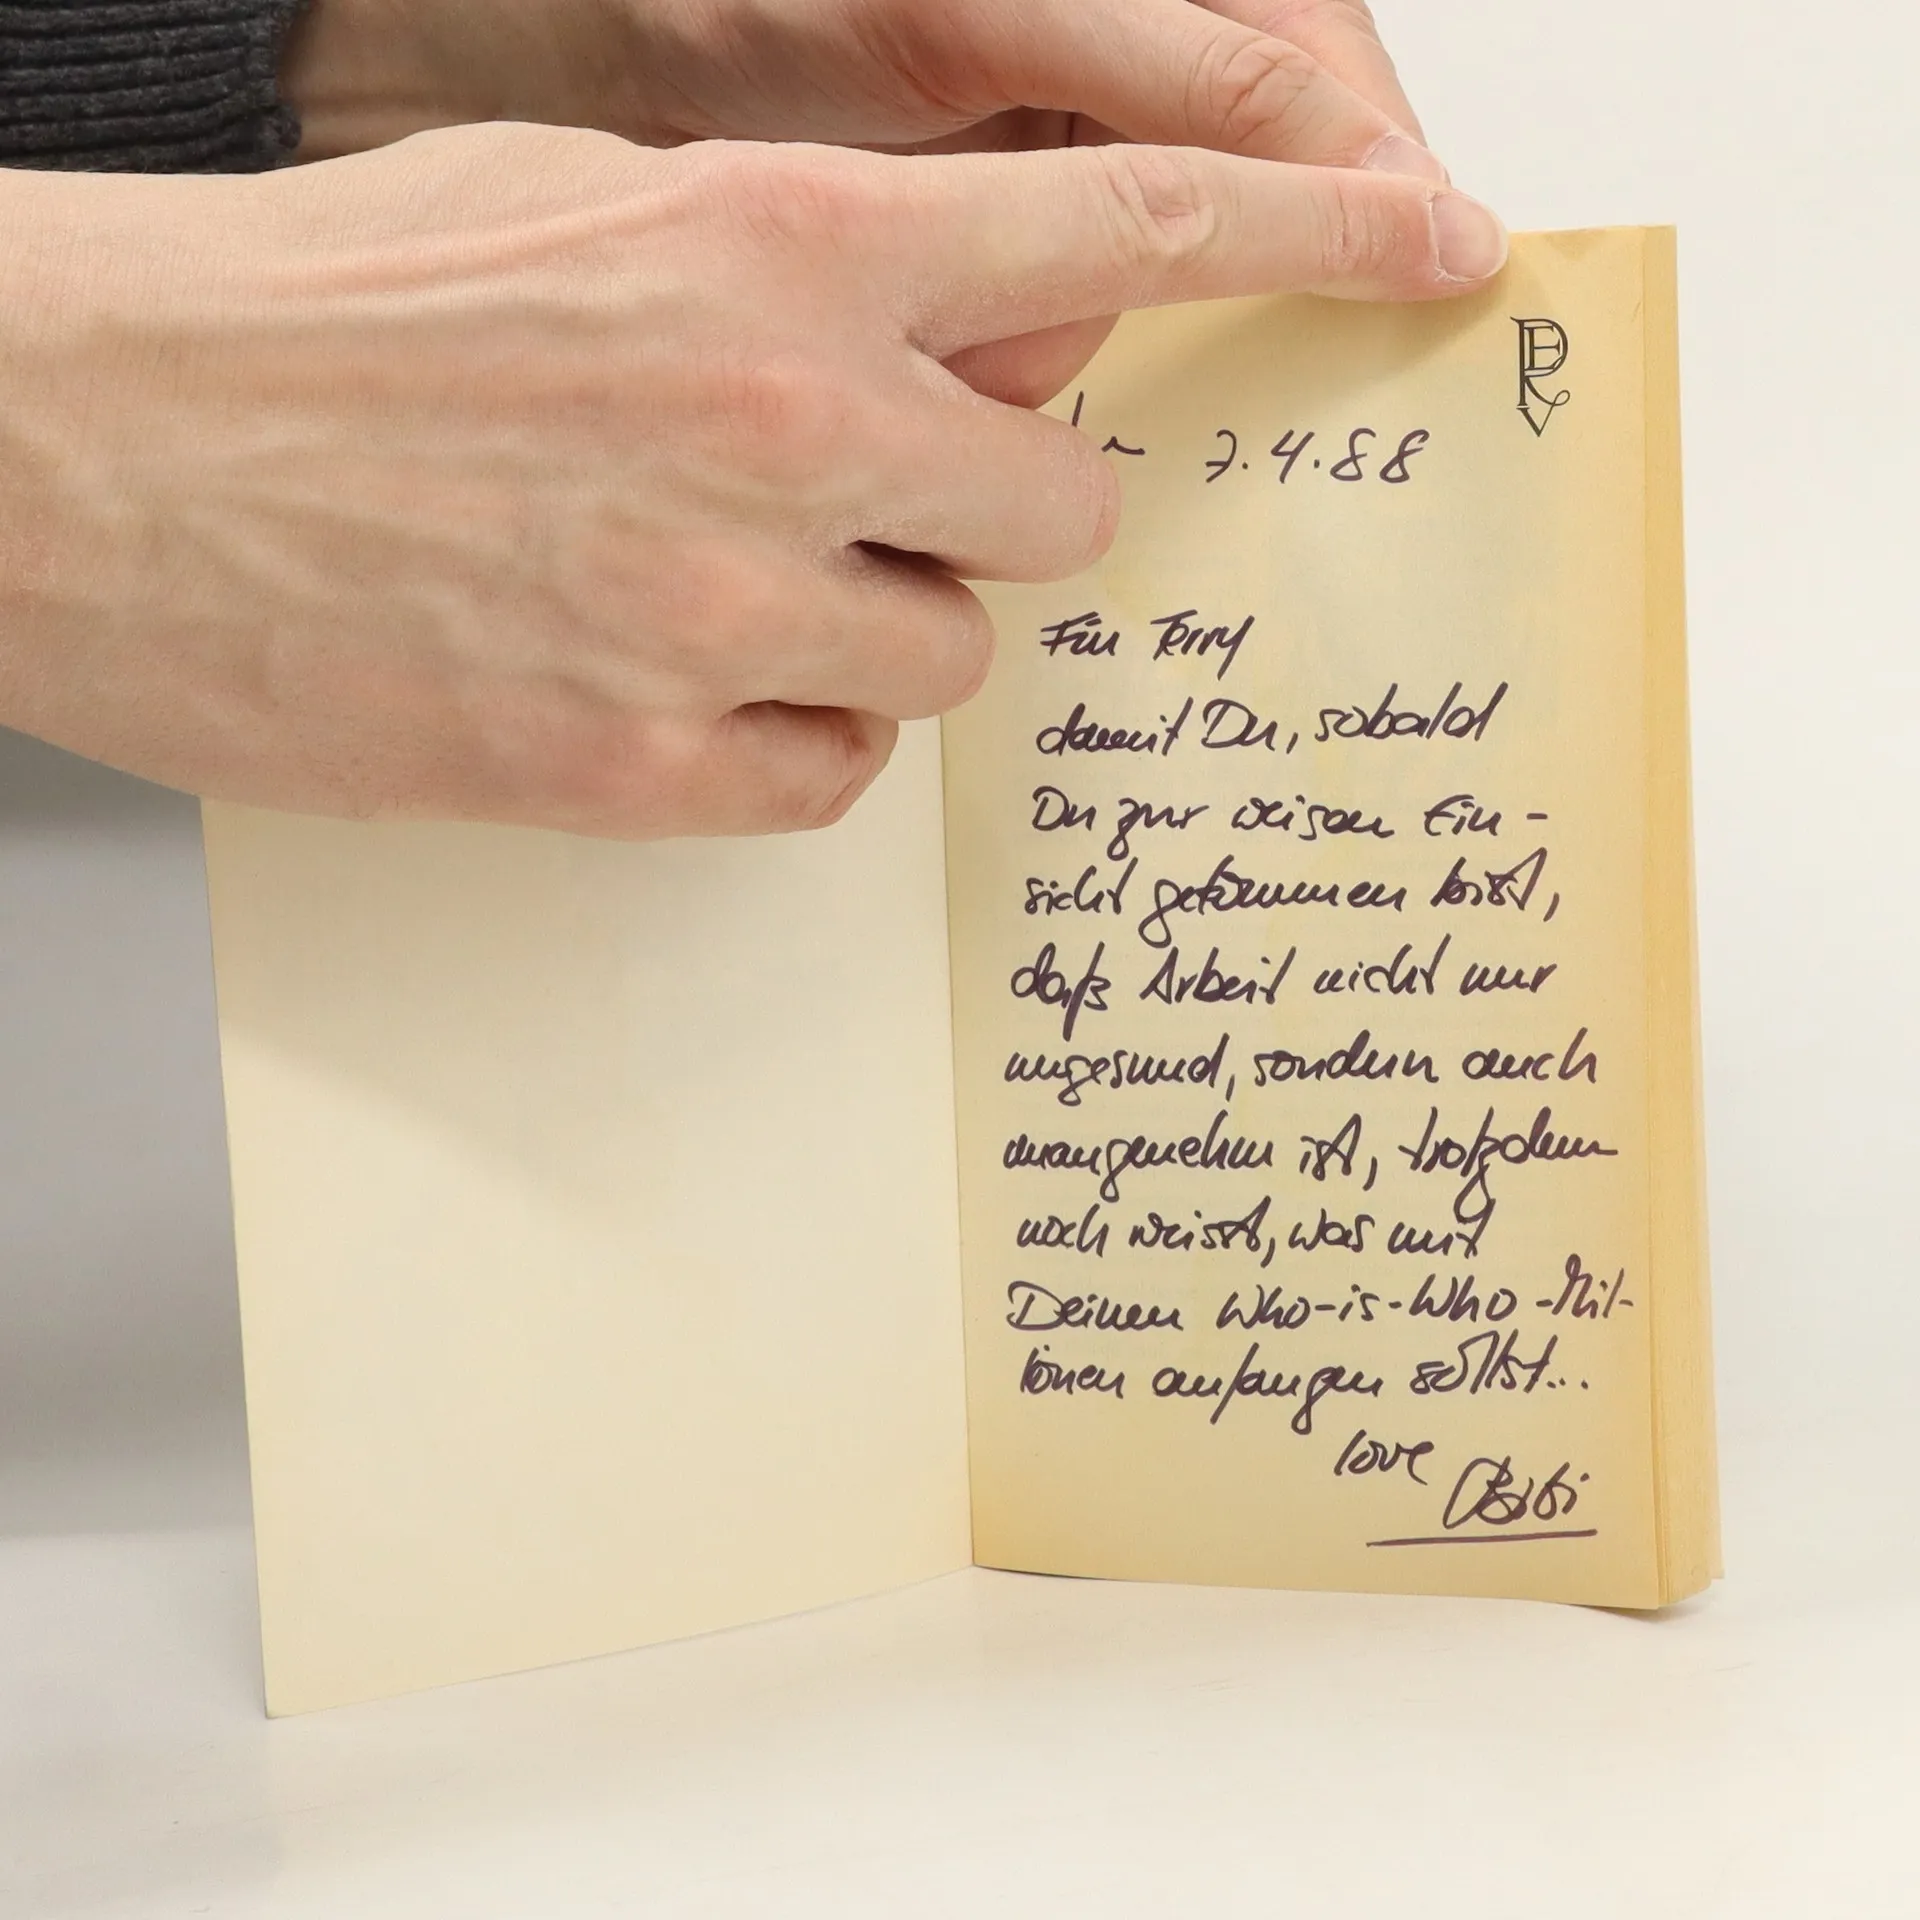 PERV
7.4.88
Für Terry
damit Du, sobald
Du zur weisen Ein-
sicht gekommen bist,
daß Arbeit nicht nur
ungesund, sondern auch
unangenehm ist, trotzdem
noch weisst, was mit
Deinen Who-is-Who-Mil-
lionen anfangen sollst...
love Bibi